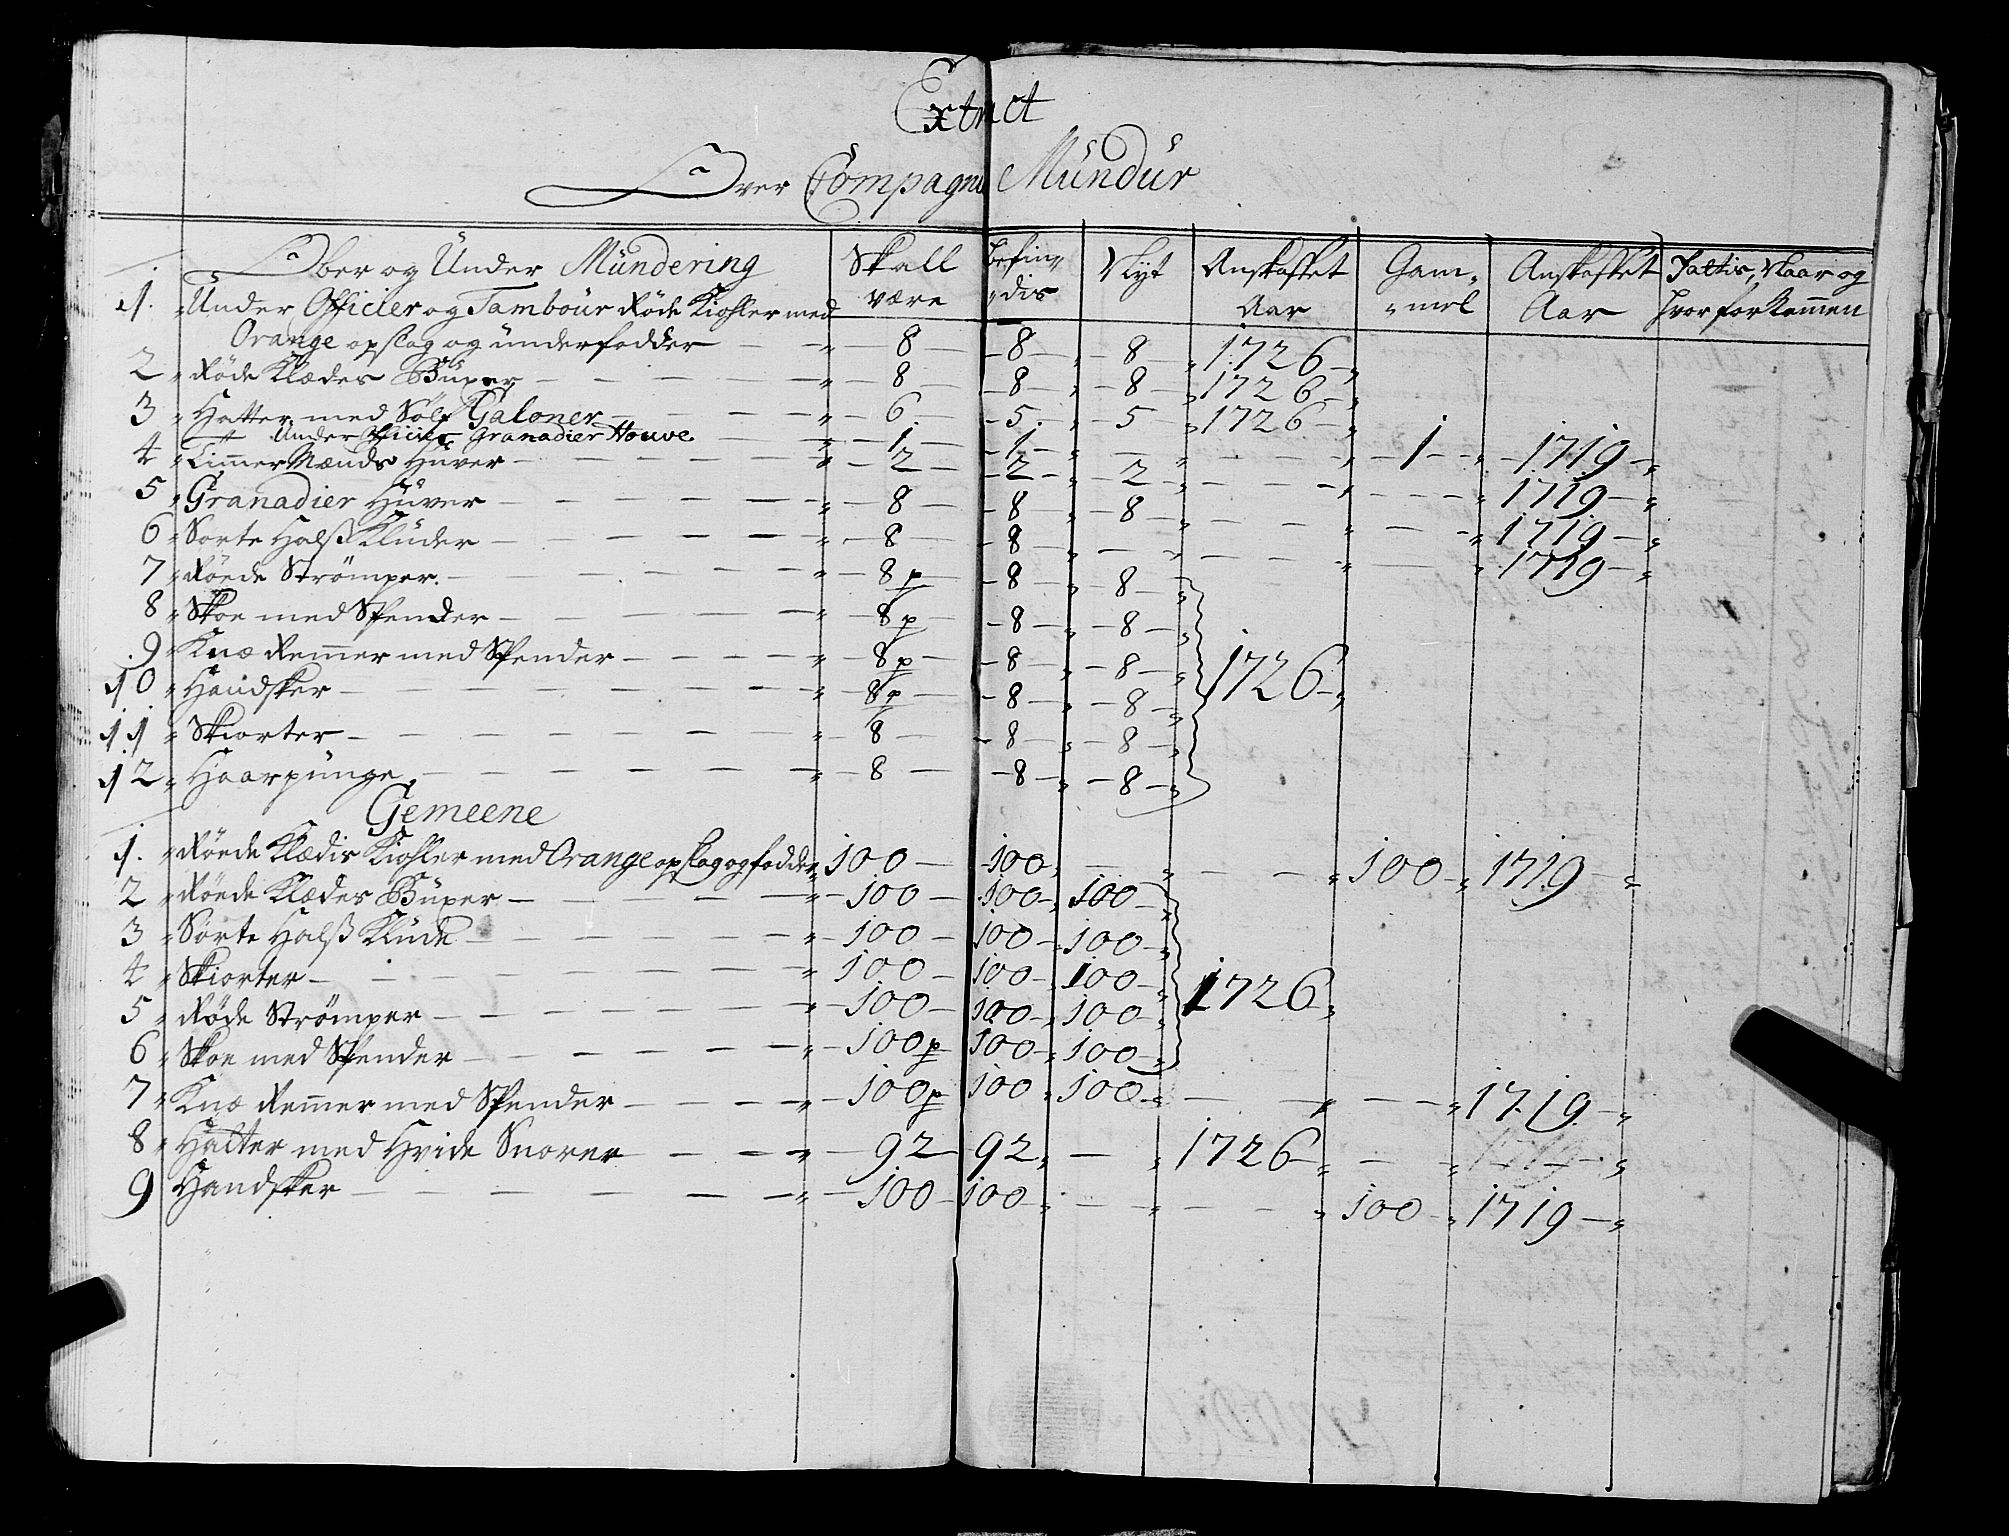 Extract
Over Compagnie Mündür
Ober og Ünder Mündering | Skall være | befin„ „dis | Nÿt | Anskaffet Aar | Gam„ „mel | Anskaffet Aar | Fattis, Naar og hvor forkommen
1. „ Ünder Officier og Tambour Røde Kiohler med
Orange opslag og ünderfodder — „ — 8 — 8 — „ — 8 — „ 1726 — „
2 „ Røde Klædes Büxer — „ — 8 — 8 — „ — 8 — „ 1726 — „
3 „ Hatter med Sølf Galoner — „ — 6 — 5 — „ — 5 — „ 1726 — „
Ünder Officier Granadier Houve — „ — 1 — 1 — „ — „ — „ — 1 — „ — 1719 — „
4 „ Timmer Mænds Hüver — „ — 2 — 2 — „ — 2 — „ — „ — „ 1719 — „
5 „ Granadier Hüver — „ — 8 — 8 — „ — 8 — „ — „ — „ 1719 — „
6 „ Sorte Halß Klüder — „ — 8 — 8 — „ — „ — „ — „ 1719 — „
7 „ Røede Strømper — „ — 8 p — 8 — „ — 8 — „
8 „ Skoe med Spender — „ — 8 p — 8 — „ — 8 — „
9 „ Knæ Remmer med Spender — „ — 8 p — 8 — „ — 8 — „ 1726 — „
10 „ Handsker — „ — 8 p — 8 — „ — 8 — „
11 „ Skiorter — „ — 8 — 8 — „ — 8 — „
12 „ Haarpünge — „ — 8 — 8 — „ — 8 — „
Gemeene
1. „ Røede Klædis Kiohler med Orange opslag og fodder „ 100 — 100 „ — „ — „ 100 — „ 1719 — „
2 „ Røede Klædes Büxer — „ — 100 — 100 — „ 100 — „
3 „ Sorte Halß Klüde — „ — 100 — 100 — „ 100 — „
4 „ Skiorter — „ — 100 — 100 — „ 100 — „ 1726 „
5 „ Røde Strømper — „ — 100 — 100 — „ 100 — „
6 „ Skoe med Spender — „ — 100 p 100 — „ 100 — „
7 „ Knæ Remmer med Spender — „ — 100 p 100 „ 100 — „ — „ — „ 1719 — „
8 „ Hatter med Hvide Snorer — „ — 92 — 92 „ — „ 1726 — „ — „ 1719 — „
9 „ Handsker — „ — 100 — 100 — „ — „ — „ 100 — „ 1719 — „